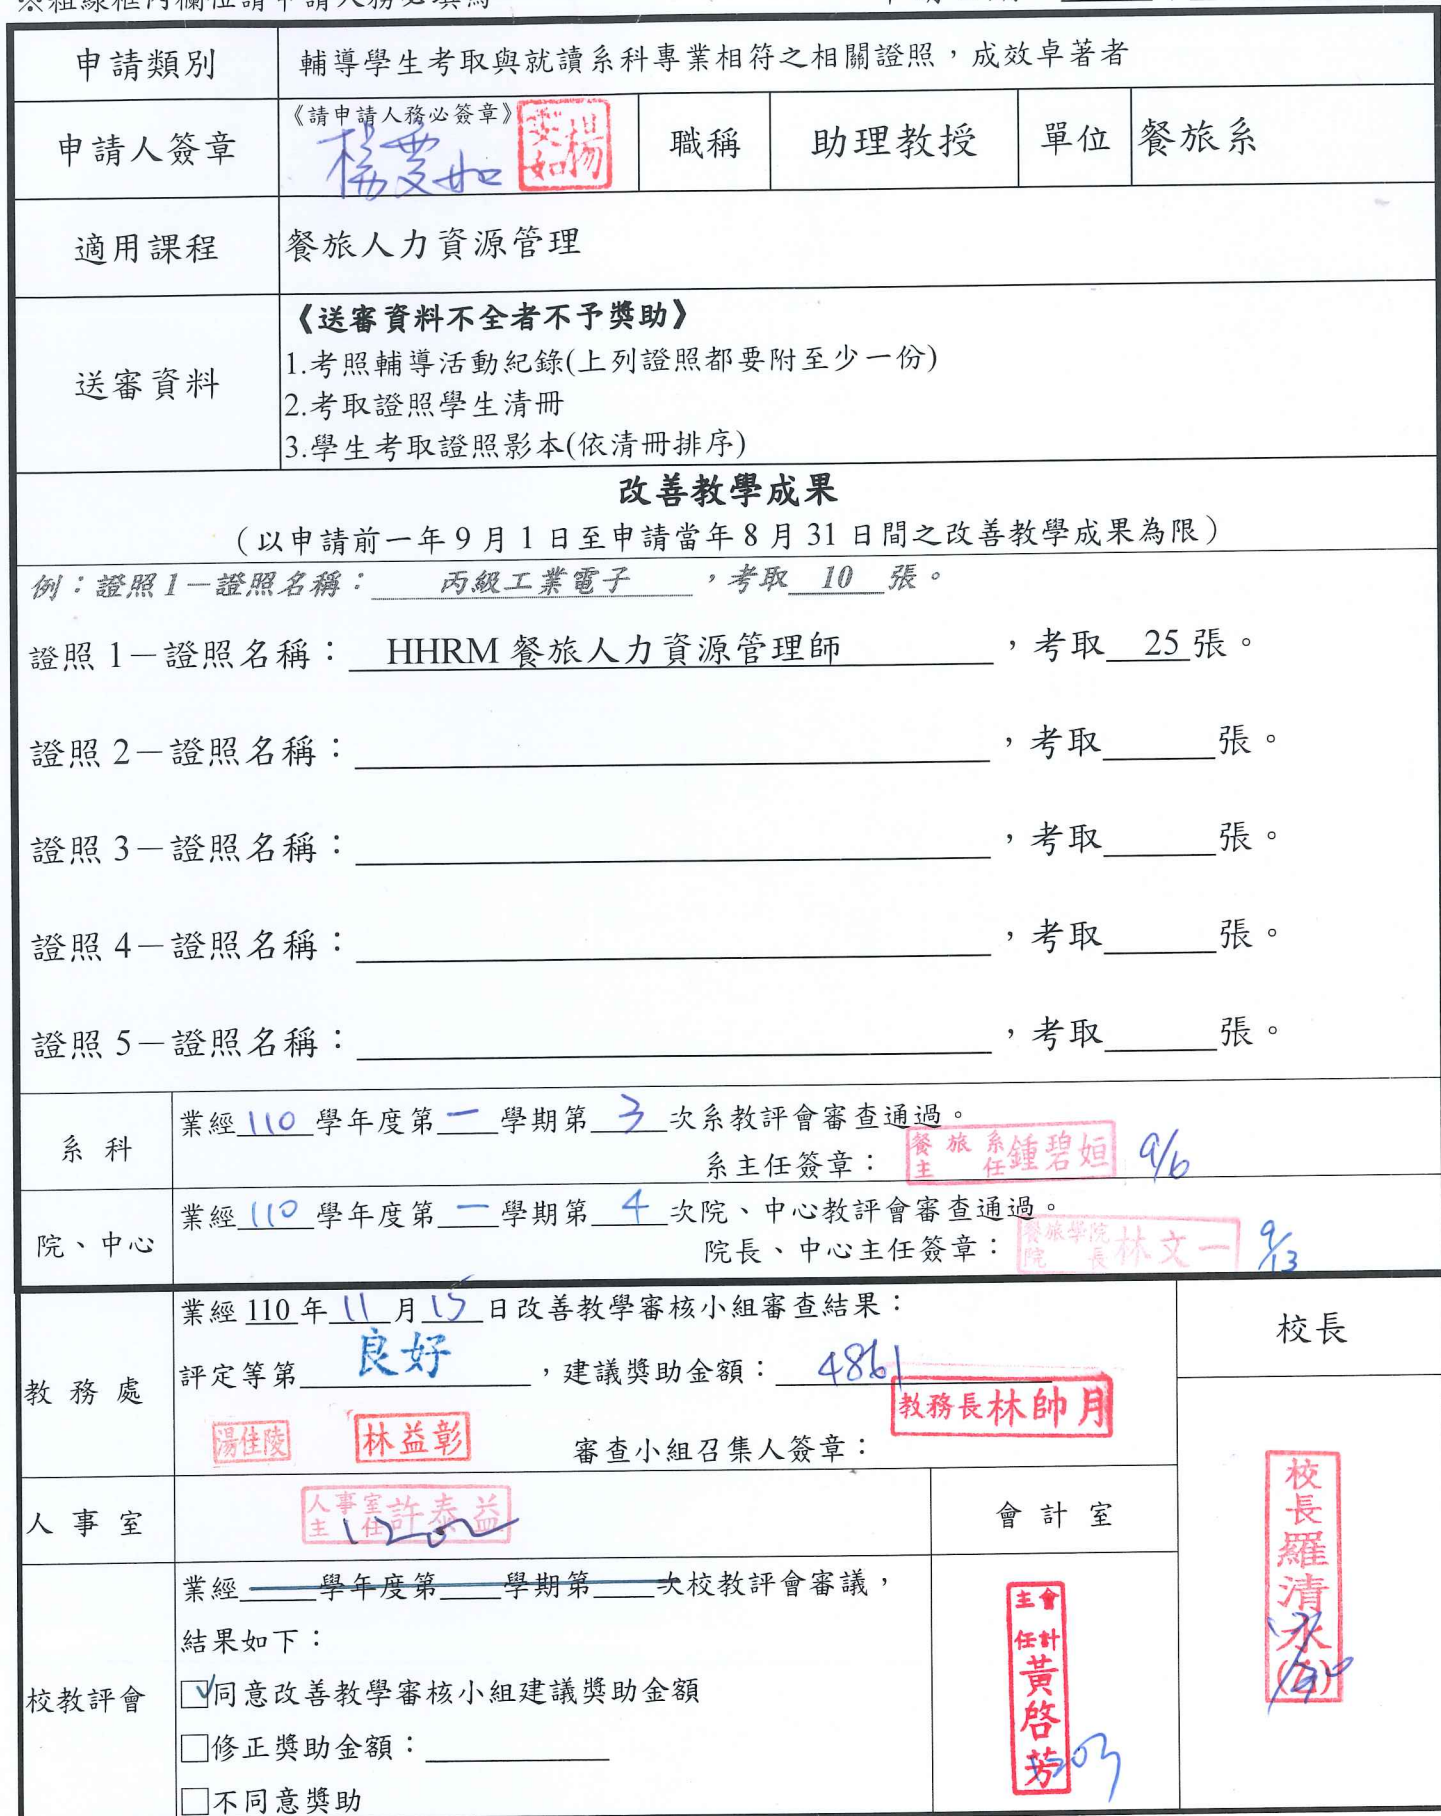 ※粗線框內欄位請申請人務必填寫
申請類別
輔導學生考取與就讀系科專業相符之相關證照，成效卓著者
申請人簽章
《請申請人務必簽章》
職稱
助理教授
單位
餐旅系
適用課程
餐旅人力資源管理
送審資料
《送審資料不全者不予獎助》
1.考照輔導活動紀錄(上列證照都要附至少一份)
2.考取證照學生清冊
3.學生考取證照影本(依清冊排序)
改善教學成果
（以申請前一年 9 月 1 日至申請當年 8 月 31 日間之改善教學成果為限）
例：證照 1－證照名稱：丙級工業電子，考取 10 張。
證照 1－證照名稱：HHRM 餐旅人力資源管理師，考取 25 張。
證照 2－證照名稱：，考取 張。
證照 3－證照名稱：，考取 張。
證照 4－證照名稱：，考取 張。
證照 5－證照名稱：，考取 張。
系科
業經 110 學年度第 一 學期第 3 次系教評會審查通過。
系主任簽章：
餐旅系主任 鍾碧姮 9/6
院、中心
業經 110 學年度第 一 學期第 4 次院、中心教評會審查通過。
院長、中心主任簽章：
餐旅學院院長 林文一 9/13
教務處
業經 110 年 11 月 15 日改善教學審核小組審查結果：
評定等第 良好，建議獎助金額：4861
教務長林帥月
湯佳陵
林益彰
審查小組召集人簽章：
校長
校長羅清水
人事室
人事室主任 許泰益
1202
會計室
會計主任 黃啓芳
1203
校教評會
業經 學年度第 學期第 次校教評會審議，
結果如下：
☑同意改善教學審核小組建議獎助金額
□修正獎助金額：
□不同意獎助